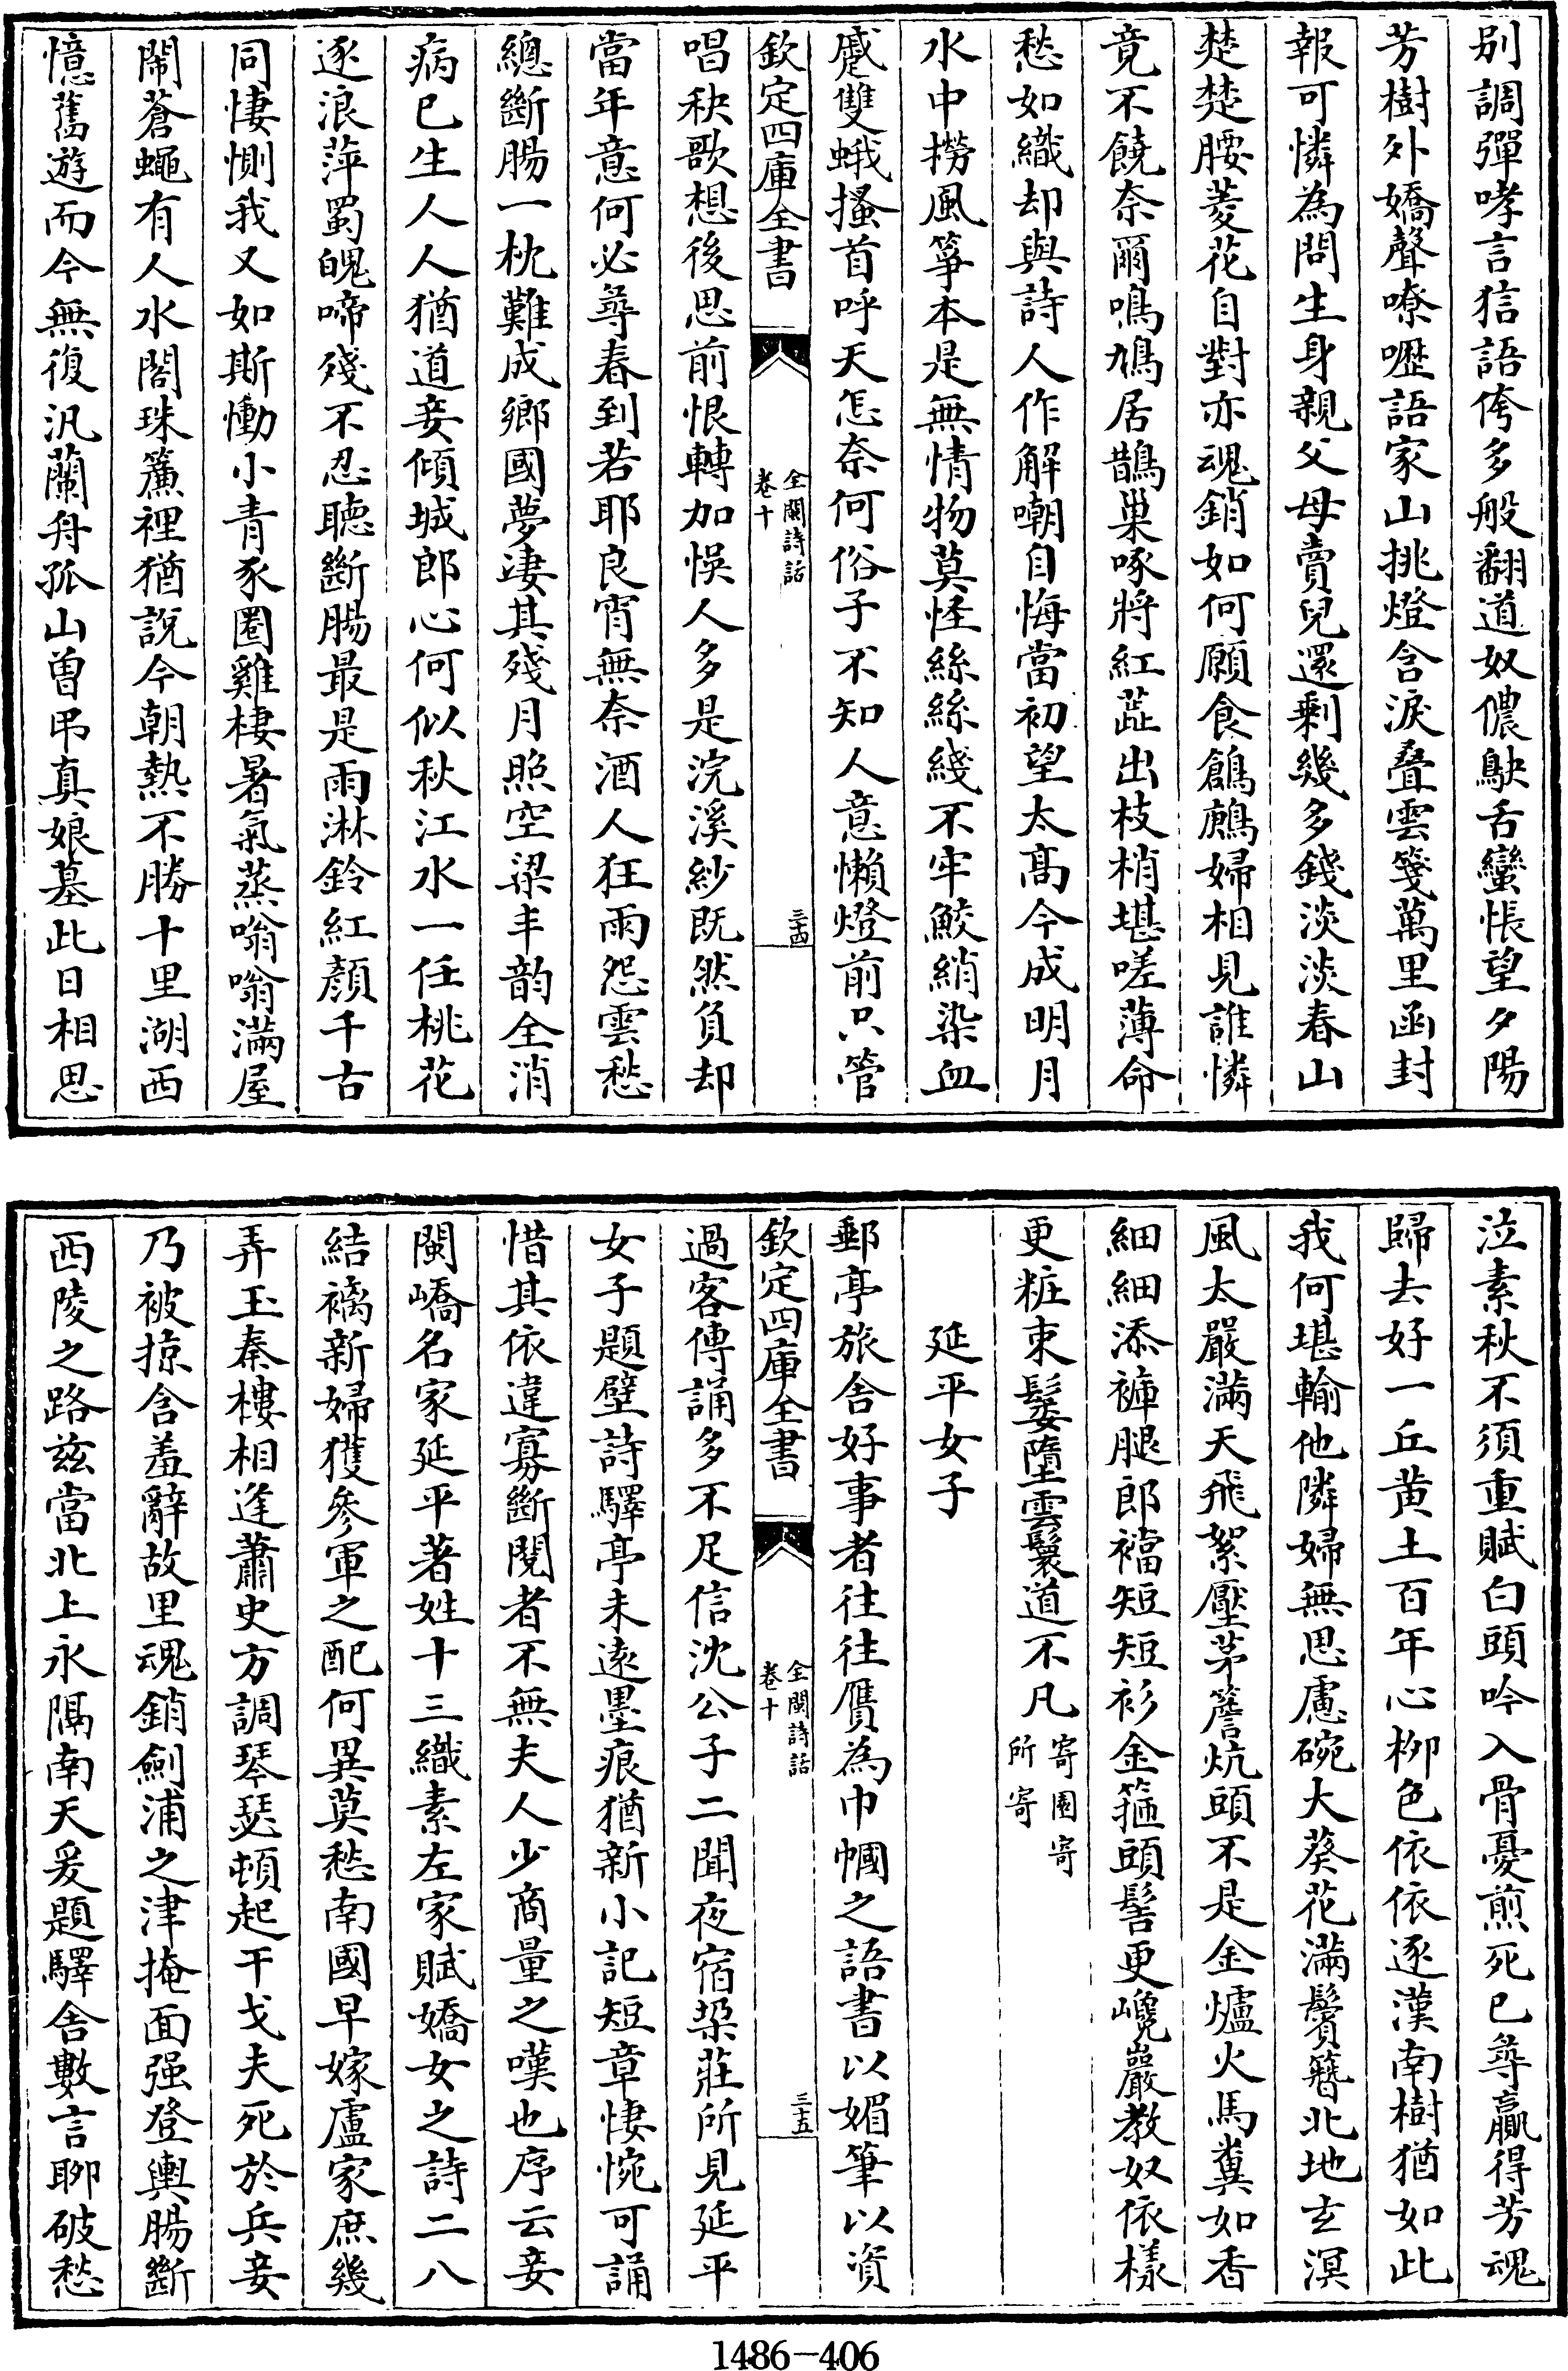 別調彈哮言狺語侉多般翻道奴儂鴃舌蠻悵望夕陽
芳樹外嬌聲嘹嚦語家山挑燈含淚叠雲箋萬里函封
報可憐為問生身親父母賣兒還剩幾多錢淡淡春山
楚楚腰菱花自對亦魂銷如何願食鶬鶊婦相見誰憐
竟不饒奈爾鳴鳩居鵲巢啄將紅蕋出枝梢堪嗟薄命
愁如織却與詩人作解嘲自悔當初望太高今成明月
水中撈風箏本是無情物莫怪絲絲綫不牢鮫綃染血
蹙雙蛾搔首呼天怎奈何俗子不知人意懶燈前只管
欽定四庫全書
全閩詩話
卷十
三十四
唱秧歌想後思前恨轉加悞人多是浣溪紗既然負却
當年意何必尋春到若耶良宵無奈酒人狂雨怨雲愁
總斷腸一枕難成鄉國夢淒其殘月照空梁丰韵全消
病已生人人猶道妾傾城郎心何似秋江水一任桃花
逐浪萍蜀魄啼殘不忍聽斷腸最是雨淋鈴紅顏千古
同悽惻我又如斯慟小青豕圈雞棲暑氣蒸嗡嗡滿屋
鬧蒼蠅有人水閣珠簾裡猶說今朝熱不勝十里湖西
憶舊遊而今無復汎蘭舟孤山曽弔真娘墓此日相思
泣素秋不須重賦白頭吟入骨憂煎死已尋贏得芳魂
歸去好一丘黄土百年心栁色依依逐漢南樹猶如此
我何堪輸他隣婦無思慮碗大葵花滿鬢簪北地玄溟
風太嚴滿天飛絮壓茅簷炕頭不是金爐火馬糞如香
細細添褲腿郎襠短短衫金箍頭髻更巉巖教奴依樣
更粧束鬖墮雲鬟道不凡
寄園寄
所寄
延平女子
郵亭旅舍好事者往往贋為巾幗之語書以媚筆以資
欽定四庫全書
全閩詩話
卷十
三十五
過客傳誦多不足信沈公子二聞夜宿梁莊所見延平
女子題壁詩驛亭未遠墨痕猶新小記短章悽惋可誦
惜其依違寡斷閱者不無夫人少商量之嘆也序云妾
閩嶠名家延平著姓十三織素左家賦嬌女之詩二八
結褵新婦獲參軍之配何異莫愁南國早嫁盧家庶幾
弄玉秦樓相逢蕭史方調琴瑟頓起干戈夫死於兵妾
乃被掠含羞辭故里魂銷劍浦之津掩面强登輿腸斷
西陵之路兹當北上永隔南天爰題驛舍數言聊破愁
1486-406